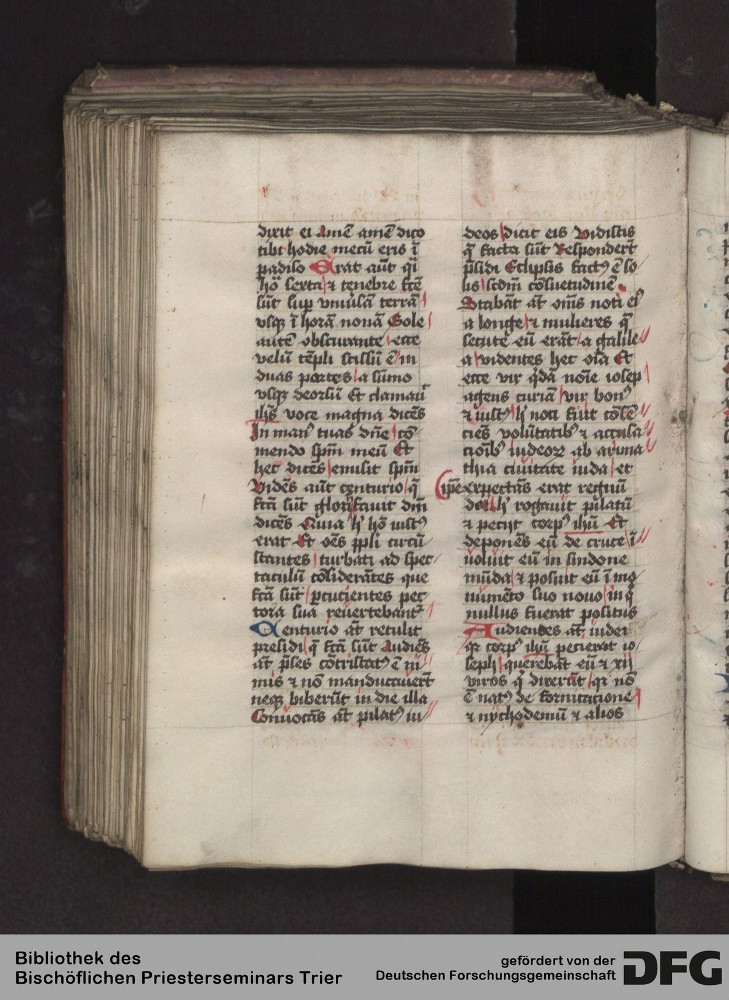 dixit ei amē amē dico
tibi hodie mecū eris ī
padiso Erat aūt q̄i
hō sexta ⁊ tenebre fcē
sūt sup vniūsā terrā
vsqꝫ ī horā nonā Sole
autē obscurante ecce
velū tēpli scissū ē in
duas partes a sūmo
vsqꝫ deorsū Et clamaū
ih̄s voce magna dicēs
In man᷒ tuas dn̄e cō
mendo spm̄ meū Et
hec dicēs emisit spm̄
Vidēs aūt centurio q̄
fcā sūt glorificauit dm̄
dicēs Quia h̓ hō iust᷒
erat Et oēs ppl̄i circū
stantes turbati ad spec
taculū cōsiderātes que
fcā sūt ꝑcucientes pec
tora sua reuertebant᷑
Centurio āt retulit
presidi q̄ fcā sūt Audiēs
āt p̄ses cōtristat᷒ ē ni
mis ⁊ nō manducauer̄t
neqꝫ biberūt in die illa
Conuocās āt pilat᷒ iu
deos dicit eis Vidistis
q̄ facta sūt Respondert̄
p̄sidi Eclipsis fact᷒ ē so
lis scdm̄ cōsuetudinē
Stabāt āt om̄s noti ei᷒
a longe ⁊ mulieres q̄
secute eū erāt a galile
a videntes hec oīa Et
ecce vir q̄dā noīe iosep
agens curiā vir bon᷒
⁊ iust᷒ h̓ nō fuit cōsē
ciēs volūtatib᷒ ⁊ accusa
cioīb᷒ iudeoꝝ ab arima
thia ciuitate iuda et
ip̄e expectās erat regnū
dei h̓ rogauit pilatū
⁊ peciit corp᷒ ih̄u Et
deponēs eū de cruce ī
uoluit eū in sindone
mūda ⁊ posuit eū ī mo
numēto suo nouo in q̄
nullus fuerat positus
Audientes āt iudei
qꝛ corp᷒ ih̄u pecierat io
seph querebāt eū ⁊ xij
viros q̄ dixerūt qꝛ nō
ē nat᷒ de fornicacione
⁊ nychodemū ⁊ alios
Bibliothek des
Bischöflichen Priesterseminars Trier
gefördert von der
Deutschen Forschungsgemeinschaft
DFG